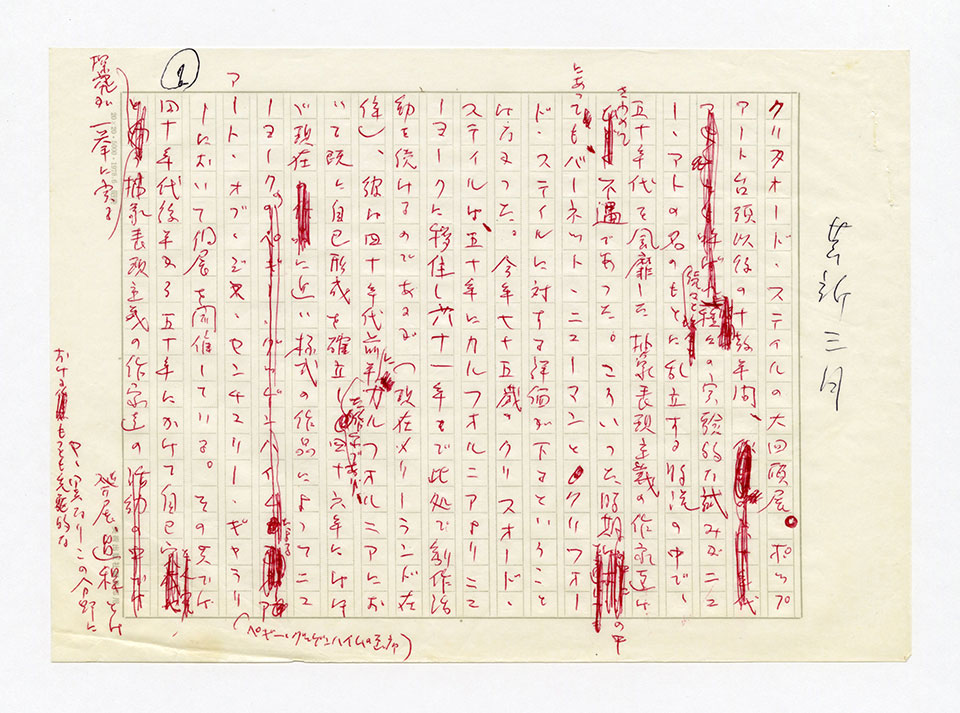 芸術三月
1
クリフオード・スティルの大回顧展 ポップ
アート台頭以後の十数年間、
種々の実験的な試みがニュ
ー・アートの名のもとに乱立する
の中で、
五十年代を風靡した抽象表現主義の作家達は
きわめて
不遇であった。こういった時期
の中
にあっても、バーネット・ニューマンとクリフォー
ド・スティルに対する評価が下るということ
はなかった。今年七十五歳のクリフォード・
スティルは、五十年にカルフォルニアからニュ
ーヨークに移住し六十一年まで此処で創作活
動を続けるのであるが(現在メリーランド在
住)、彼は四十年代前半に、カルフォルニアにお
いて既に自己形成を確立し
四十六年には
で現在
に近い様式の作品によってニュ
ーヨークの
アート・オブ・ジス・センチュリー・ギャラリ
(ペギー・グッゲンハイムの画廊)
ーにおいて個展を開催している。その点では
四十年代後半から五十年にかけて自己
抽象表現主義の作家達の
開花が一挙に実る
発展の過程とは
やゝ異なりこの分野に
おける
もっとも先駆的な